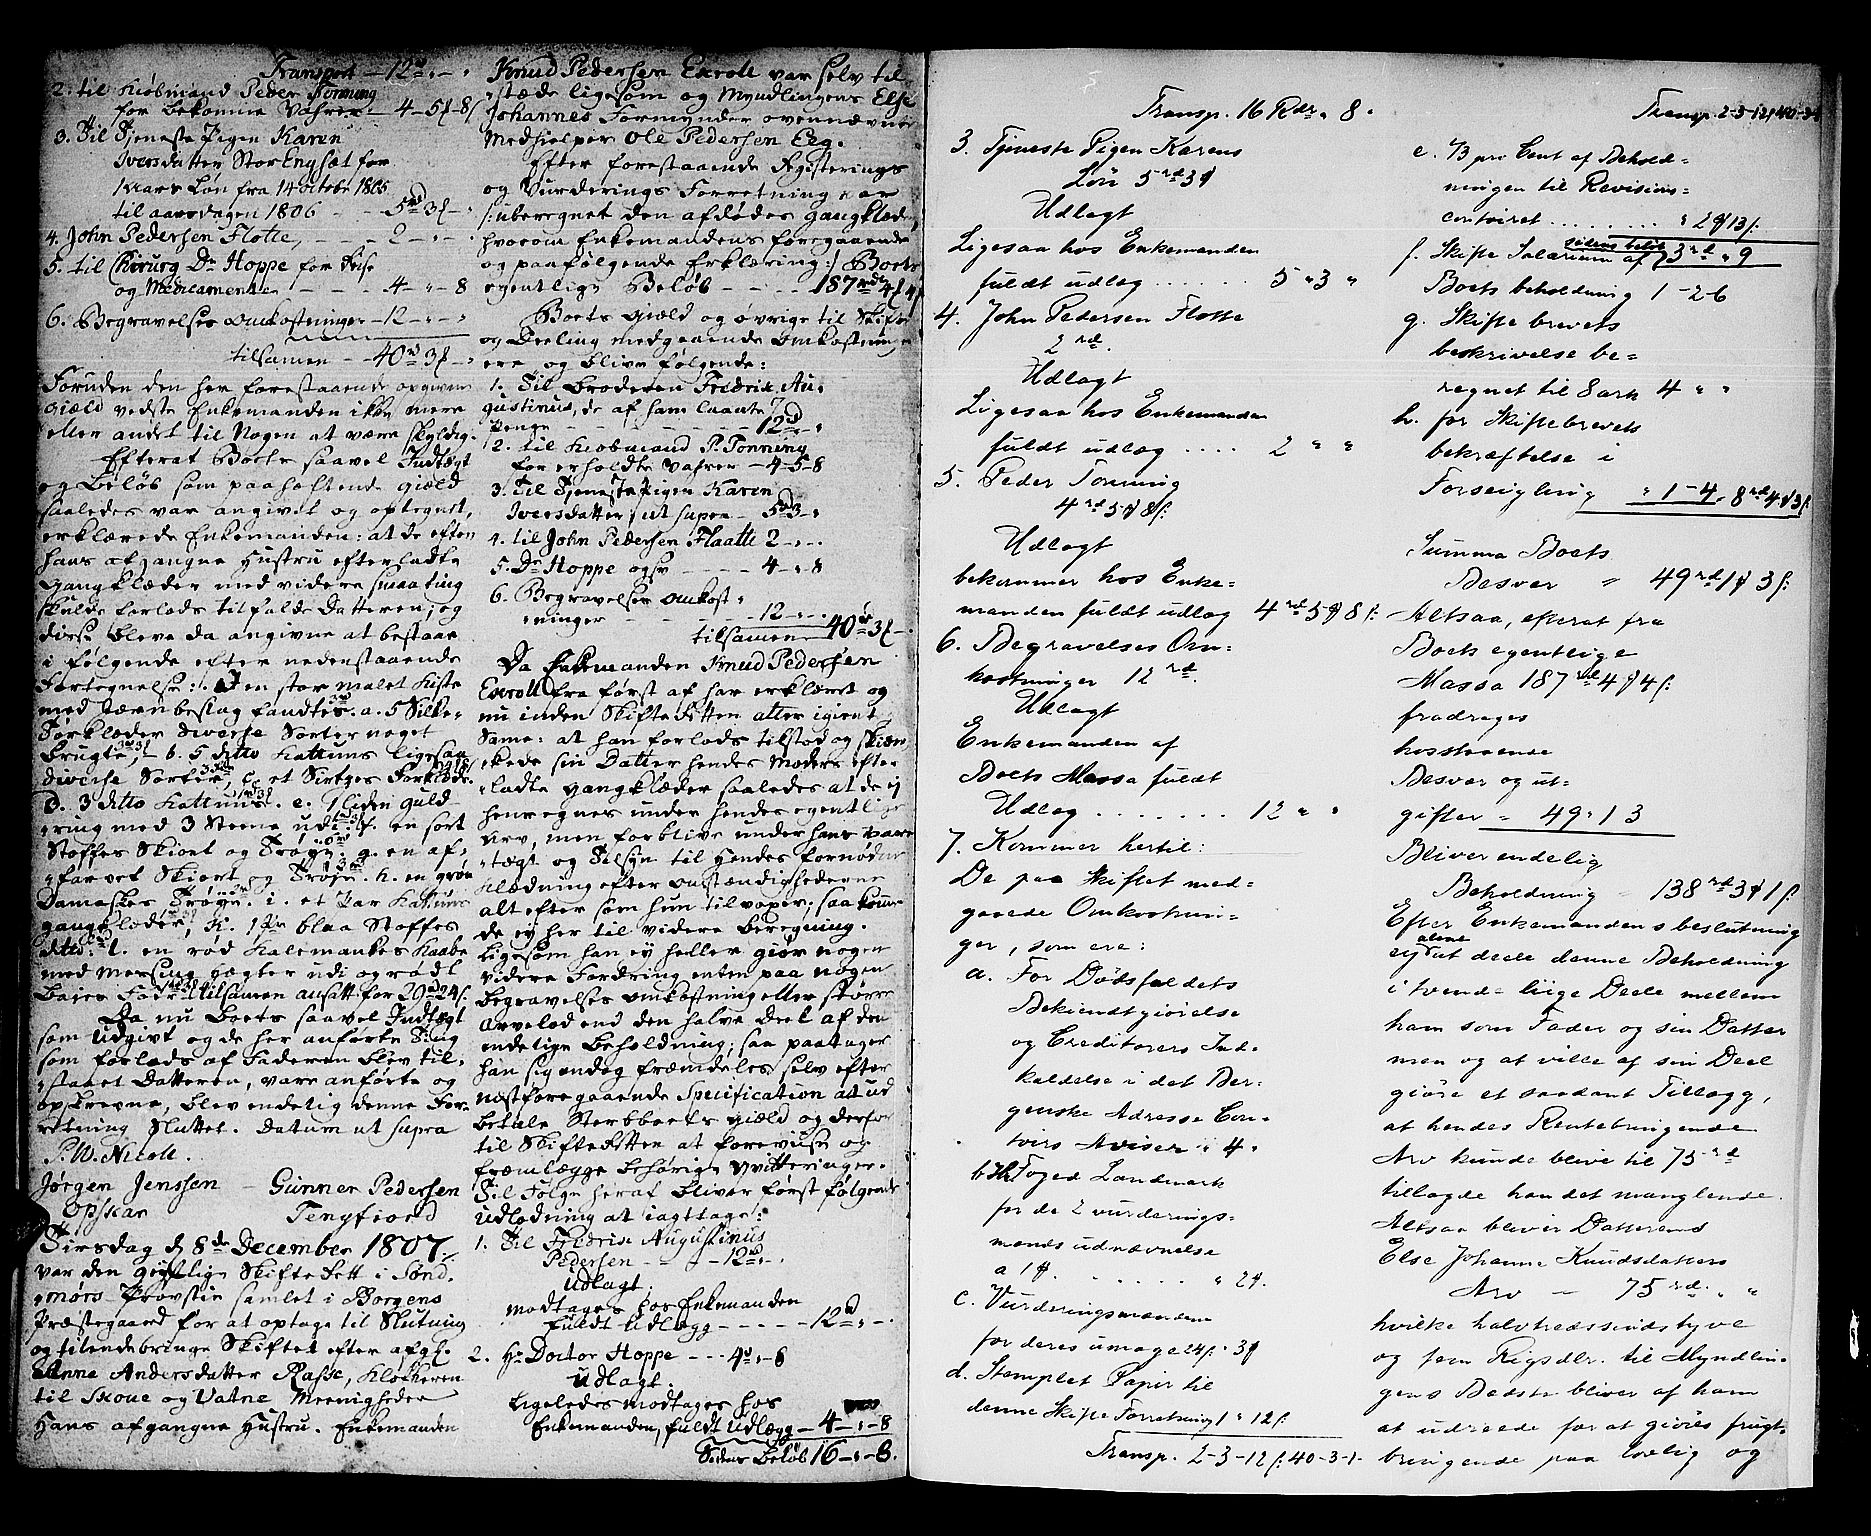 Transport — 12 rd „ - „
2. til Kiøbmand Peder Tonning
for bekomne Vahrer - 4 - 5 ʃ - 8 ʃ
3. Til Tjeneste Pigen Karen
Iversdatter Stor Engsæt for
1 Aars Løn fra 14 octobr 1805
til aarsdagen 1806 - - - 5 rd 3 ʃ - „
4. John Pedersen Flotte, - - - 2 - „ - „
5. til Chirurg Dr Hoppe for Reise
og Medicamenter - - - - 4 - „ - 8
6. Begravelses Omkostninger - 12 - „ - „
tilsamen - - 40 rd 3 ʃ - „
Foruden den her forestaaende opgivne
Giæld vedste Enkemanden ikke mere
eller andet til Nogen at være skyldig.
Efterat Boets saavel Indtægt
og Beløb som paahæftende Giæld
saaledes var angivet og optegnet,
erklærede Enkemanden: at de efter
hans afgangne Hustru efterladte
Gangklæder med videre smaating
skulde forlods tilfalde Datteren; og
disse bleve da angivne at bestaae
i følgende efter nedenstaaende
Fortegnelse: I en stor malet Kiste
med Jærnbeslag fandtes. a. 5 Silke-
Tørklæder diverse Sorter noget
brugte, b. 5 ditto Kattuns ligesaa
diverse Sorter, c. et Sirtses Forklæde.
d. 3 ditto Kattuns. e. 1 liden Guld-
ring med 3 Steene udi. f. en sort
Stoffes Skiort og Trøye. g. en af-
farvet Skiort og Trøye. h. en grøn
Damaskes Trøye. i. et Par Kattuns
gangklæder, K. 1 Par blaa Stoffes
ditto. l. en rød Kalemankes Kaabe
med Messing Hægter udi og rødt
Baies Foder tilsamen ansatt for 29 rd 24 ʃ.
Da nu Boets saavel Indtægt
som Udgivt og de her anførte Ting
som forlods af Faderen blev til-
staaet Datteren, vare anførte og
opskrevne, blev endelig denne For-
retning Sluttet. Datum ut supra
P. W. Nicoll.
Jørgen Jenssen - Gunner Pedersen
Opskar Tengfiord
Tirsdag d 8de December 1807.
var den Geistlige Skifte Rett i Sønd-
mørs Provstie samlet i Borgens
Præstegaard for at optage til Slutning
og tilendebringe Skiftet efter afgl.
Anne Andersdatter Rasse, Klokkeren
til Skoue og Vatne Meenigheder
Hans afgangne Hustru. Enkemanden
Knud Pedersen Exroll var selv til-
stæde ligesom og Myndlingens Else
Johannes Formynder ovennævnte
Medhielper Ole Pedersen Eeg.
Efter forestaaende Registerings
og Vurderings Forretning var
/: uberegnet den afdødes Gangklæder
hvorom Enkemandens foregaaende
og paafølgende Erklæring :/ Boets
egentlige Beløb - - - - 187 rd 4 ʃ 4 ʃ
Boets Giæld og øvrige til Skifte
og Deeling medgaaende Omkostninger
ere og blive følgende:
1. Til Broderen Fredrik Au-
gustinus, de af ham laante
Penge - - - - - - - 12 rd „ - „
2. til Kiobmand P. Tonning
for erholdte Vahrer - 4 - 5 - 8
3. Til Tjeneste Pigen Karen
Iversdatter, ut supra - 5 rd 3 - „
4. til John Pedersen Flaatte 2 - „ -
5. Dr Hoppe ogsv - - - - 4 - „ 8
6. Begravelses Omkost-
ninger - - - - - 12 - „ -
tilsamen - 40 rd 3 ʃ -
Da Enkemanden Knud Pedersen
Exroll fra først af har erklæret og
nu inden Skifte Retten atter igient
Same: at han forlods tilstod og skien-
kede sin Datter hendes Moders efter-
ladte Gangklæder saaledes at de ej
henregnes under hendes egentlige
Arv, men forblive under hans Vare-
tægt og Tilsyn til Hendes fornødne
Klædning efter Omstændighederne
alt efter som hun tilvoxer; saa komme
de ey her til videre Beregning.
Ligesom han ey heller giør nogen
videre Fordring enten paa nogen
Begravelses Omkostning eller større
Arvelod end den halve Deel af den
endelige Beholdning; saa paatager
han sig endog fremdeles selv efter
næstforegaaende Specification at ud
betale Sterbboets Giæld og derfor
til Skifte Retten at forevise og
fremlægge behørige Qvitteringer.
Til Følge heraf bliver først følgende
Udlodning at iagttage:
1. Til Fredrik Augustinus
Pedersen - - - 12 rd „ -
Udlagt.
modtages hos Enkemanden
fuldt Udlegg - - - - - 12 rd „ -
2. Hr Doctor Hoppe - - - 4 rd „ - 8
Udlagt.
Ligeledes modtages hos
Enkemanden, fuldt Udlægg - 4 - „ - 8
Sidens Beløb 16 - „ - 8.
Transp. 16 Rdr „ 8 „
3. Tjeneste Pigen Karens
Lön 5 rd 3 ʃ
Udlagt
Ligesaa hos Enkemanden
fuldt udlæg . . . . . . 5 „ 3 „
4. John Pedersen Flotte
2 rd.
Udlagt
Ligesaa hos Enkemanden
fuldt udlæg . . . . 2 „ „
5. Peder Tonning
4 rd 5 ʃ 8 ʃ:
Udlagt
bekommer hos Enke=
manden fuldt udlæg 4 rd 5 ʃ 8 ʃ:
6. Begravelses Om-
kostninger 12 rd.
Udlagt
Enkemanden af
Boets Massa fuldt
Udlæg . . . . . . . 12 „ „
7. Kommer hertil:
De paa Skiftet med-
gaaede Omkostnin-
ger, som ere:
a. For Dödsfaldets
Bekiendtgiörelse
og Creditorers Ind-
kaldelse i det Ber-
genske Adresse Con-
toirs Aviser „ 4 „
b. Hr. Foged Landmark
for de 2 vurderings-
mænds udnævnelse
a 1 ʃ. . . . . . . „ 2 ʃ.
c. Vurderingsmændene
for deres umage 24 ʃ. „ 3 ʃ
d. Stemplet Papir til
denne Skifte Forretning 1 „ 12 ʃ:
Transp. 2 - 3 - 12 ʃ: 40 - 3 - 1 -
Transp. 2-3-12, 40-3-1
e. 1/3 pro Cent af Behold=
ningen til Revisions=
contoiret . . . . . . . „ 2 ʃ 13 ʃ:
f. Skifte Salarium af sidens beløb 73 rd „ 9
Boets beholdning 1 - 2 - 6
g. Skifte brevets
beskrivelse be=
regnet til 8 ark 4 „ „
h. for Skiftebrevets
bekræftelse i
Forseigling „ 1 - 4 „ 8 rd 4 ʃ 3 ʃ:
Summa Boets
Besvær „ 49 rd 1 ʃ 3 ʃ:
Altsaa, efterat fra
Boets egentlige
Massa 187 rd 4 ʃ 4 ʃ:
fradrages
hosstaaende
Besvær og ut-
gifter = 49 „ 1 3
Bliver endelig
Beholdning = 138 rd 3 ʃ 1 ʃ:
Efter Enkemandens beslutning
ey alene at deele denne Beholdning
i tvende liige Deele mellem
ham som Fader og sin Datter
men og at ville af sin Deel
giöre et saadant Tillægg,
at hendes Rentebringende
Arv kunde blive til 75 rd
tillagde han det manglende.
Altsaa bliver Datterens
Else Johanne Knudsdatters
Arv — 75 rd. „ „
hvilke halvtredsesindstyve
og fem Rigsdlr. til Myndlin-
gens Bedste bliver af ham
at udreede for at giöres frugt-
bringende paa lovlig og